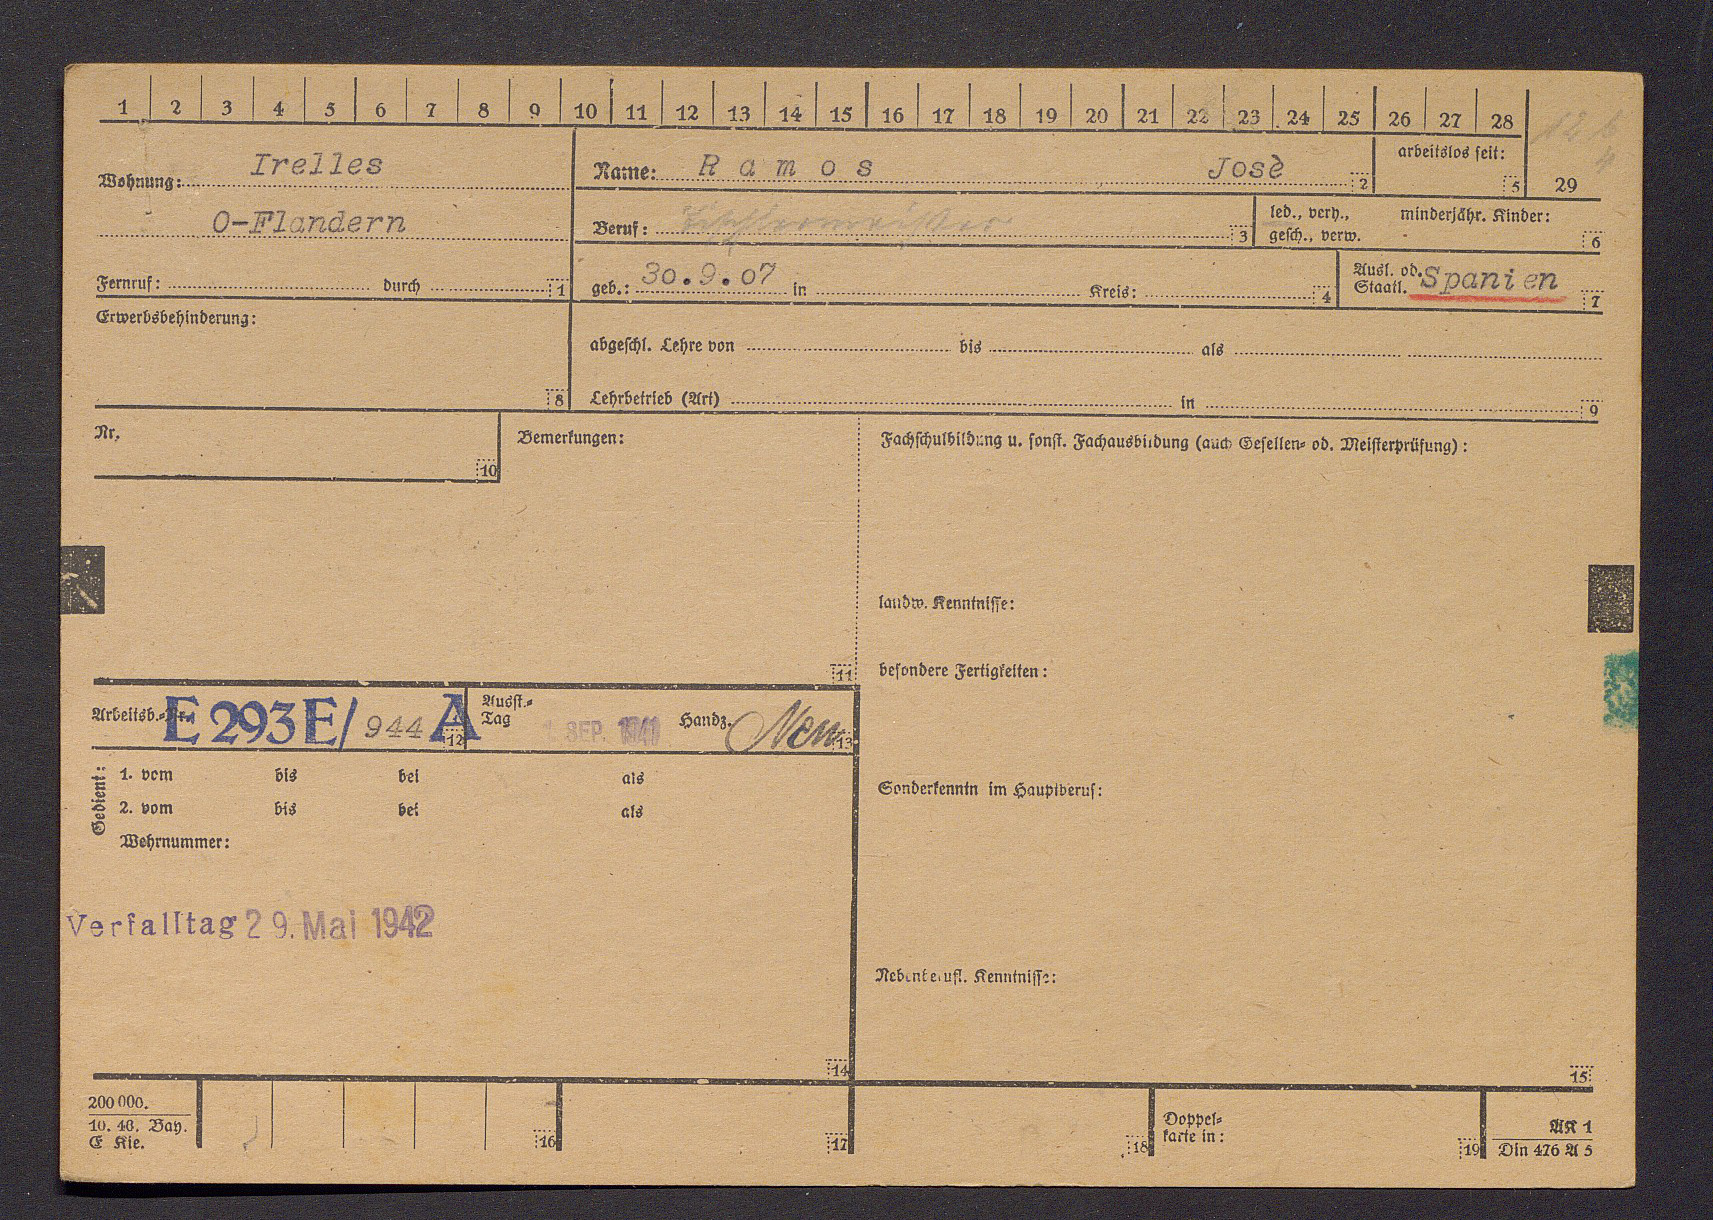 1 2 3 4 5 6 7 8 9 10 11 12 13 14 15 16 17 18 19 20 21 22 23 24 25 26 27 28
Wohnung: Irelles
O-Flandern
Fernruf: durch 1
Name: Ramos Josè 2
arbeitslos seit: 5
29
Beruf: Tischlermeister 3
led., verh., gesch., verw. minderjähr. Kinder: 6
geb.: 30.9.07 in Kreis: 4
Ausl. od. Staatl. Spanien 7
Erwerbsbehinderung: 8
abgeschl. Lehre von bis als
Lehrbetrieb (Art) in 9
Nr. 10
Bemerkungen: 11
Fachschulbildung u. sonst. Fachausbildung (auch Gesellen- od. Meisterprüfung):
landw. Kenntnisse:
besondere Fertigkeiten:
Arbeitsb.-Nr. E 293 E/ 944 A 12
Ausst.-Tag 1. SEP. 1941 Handz. 13
Gedient: 1. vom bis bei als
2. vom bis bei als
Wehrnummer:
Sonderkenntn im Hauptberuf:
Verfalltag 29. Mai 1942
14
Nebenberufl. Kenntnisse:
15
200 000.
10. 40. Bay.
E Kie.
16 17 18
Doppel-
karte in: 19
AK 1
Din 476 A 5